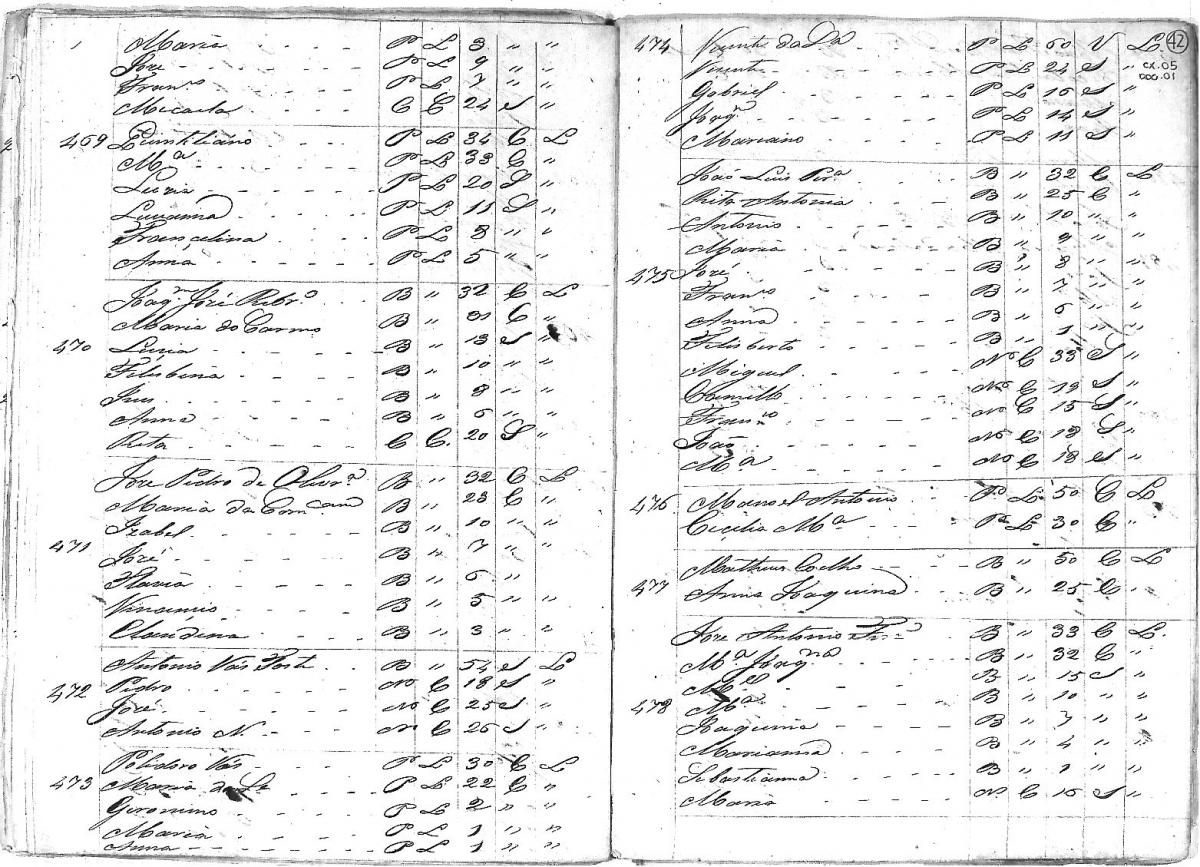 Maria P L 3 " "
José P L 9 " "
Franco P L 7 " "
Micaela C C 24 S "
469 Quintiliano P L 34 C L
Ma P L 33 C "
Luzia P L 20 S "
Luciana P L 11 S "
Francelina P L 8 " "
Anna P L 5 " "
Joaqm José Ribro B " 32 C L
Maria do Carmo B " 31 C "
470 Luzia B " 13 S "
Felisbina B " 10 " "
B " 8 " "
Anna B " 6 " "
Rita C C. 20 S "
José Pedro de Olivra B " 32 C L
Maria da Concam B " 23 C "
Izabel B " 10 " "
471 José B " 7 " "
Flavia B " 6 "
Vincencio B " 5 " "
Claudina B " 3 " "
Antonio Vás B " 54 S L
472 Pedro No C 18 S "
José N C 25 S "
Antonio N. N C 26 S "
Polidoro Vás P L 30 C L
473 Maria da P L 22 C "
Geronimo P L 2 " "
Maria P L 1 " "
Anna P L 1 " "
42
cx.05
doc.01
474 Vicente da P L 60 V L
Vicente P L 24 S "
Gabriel P L 16 S "
Joaqm P L 14 S "
Mariano P L 11 S "
João Luis Pera B " 32 C L
Rita Antonia B " 25 C "
Antonio B " 10 " "
Maria B " 9 " "
475 José B " 8 " "
Franco B " 7 " "
Anna B " 6 " "
Felisberto B " 1 " "
Miguel No C 33 S "
Camillo No C 19 S "
Franco No C 15 S "
João No C 18 S "
Ma No C 18 S "
476 Manoel Antonio Po L 50 C L
Cecilia Ma Pa L 30 C "
Matheus Coelho B " 50 C L
477 Anna Joaquina B " 25 C "
José Antonio B " 33 C L.
Ma Joaqna B " 32 C "
Mel B " 15 S "
478 Ma B " 10 " "
Joaquina B " 7 " "
Marianna B " 4 " "
Sebastianna B " 1 " "
Maria N. C 15 S "